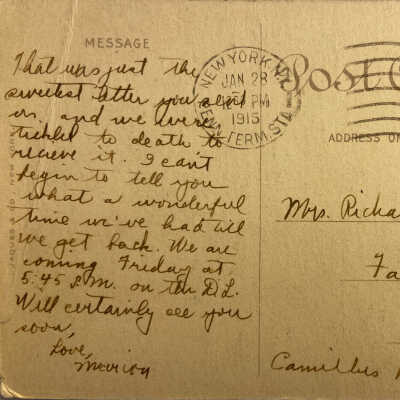 MESSAGE
That was just the
sweetest letter you sent
us, and we were
tickled to death to
recieve it. I can't
begin to tell you
what a wonderful
time we've had till
we get back. We are
coming Friday at
5:45 P.M. on the D.L.
Will certainly see you
soon,
Love,
Marion
NEW YORK, N.Y.
JAN 28
PM
1915
PENN. TERM. STA.
Post C
ADDRESS ON
Mrs. Richa
Fa
Camillus